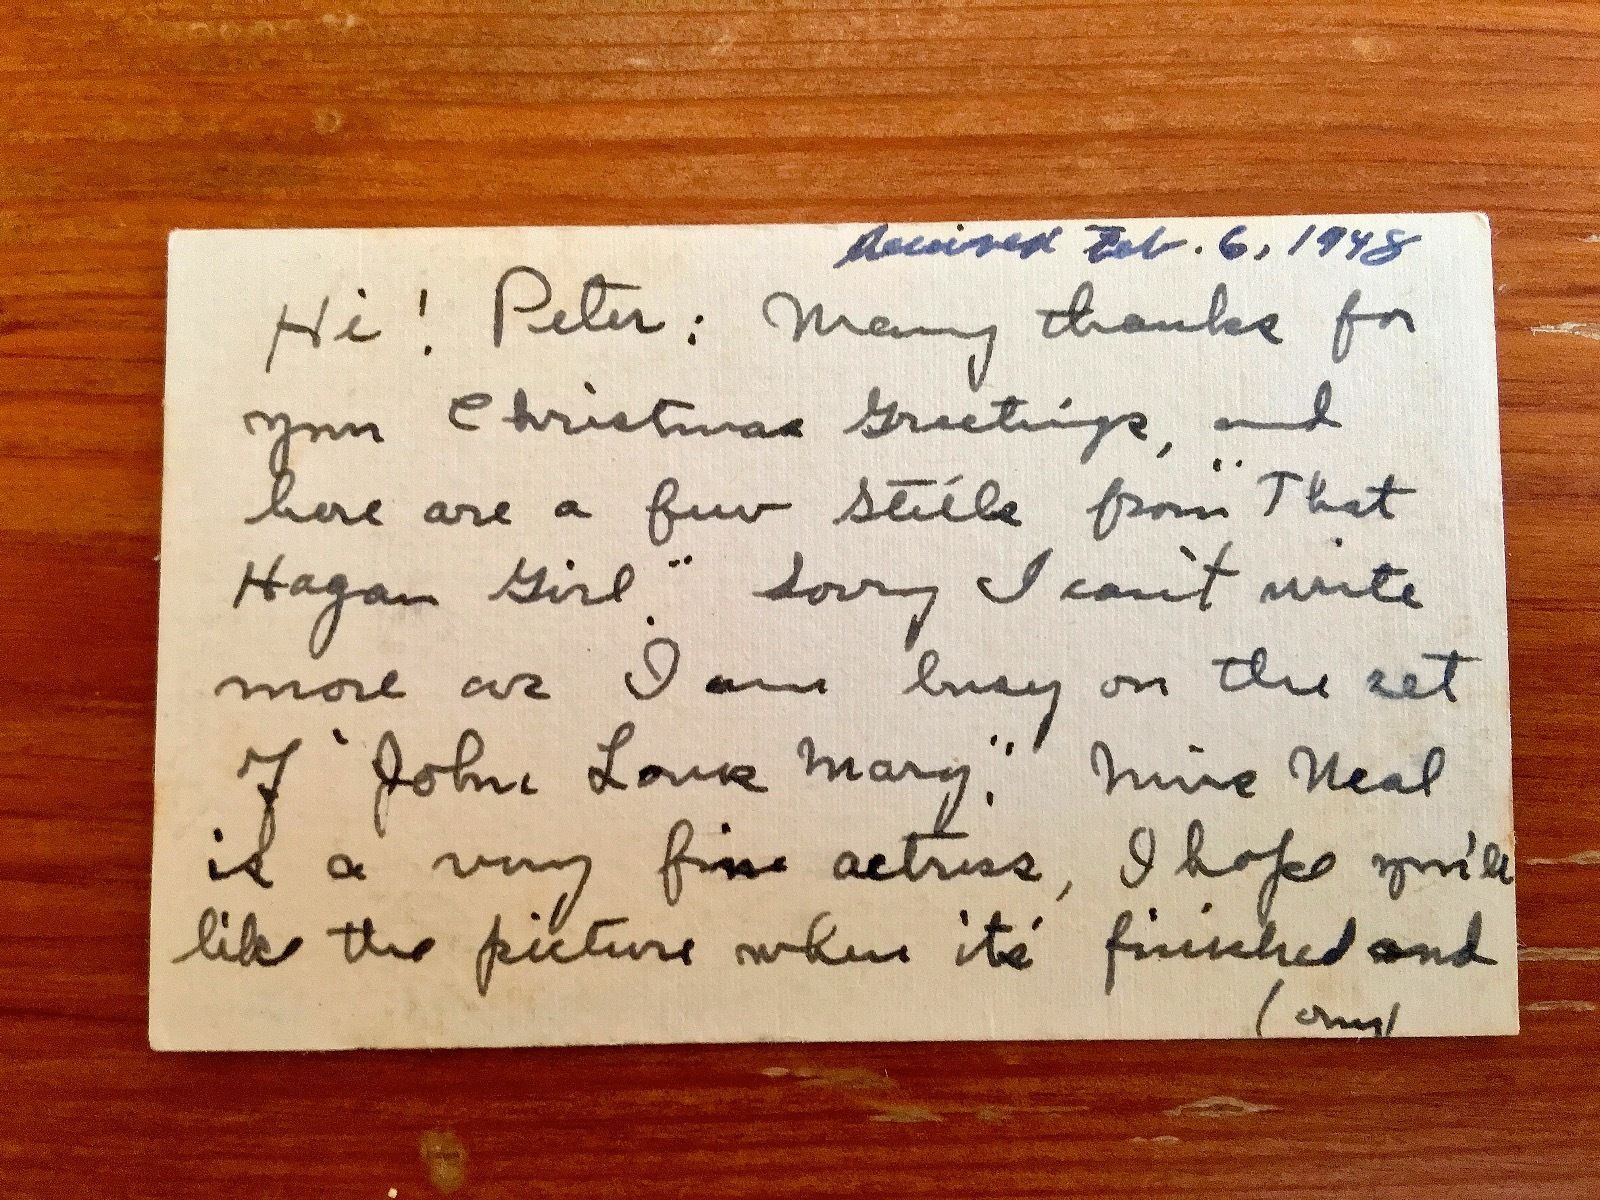 Received Feb. 6, 1948
Hi! Peter: Many thanks for
your Christmas Greetings, and
here are a few stills from "That
Hagan Girl." Sorry I can't write
more as I am busy on the set
of "John Loves Mary." Miss Neal
is a very fine actress, I hope you'll
like the picture when it's finished and
(over)